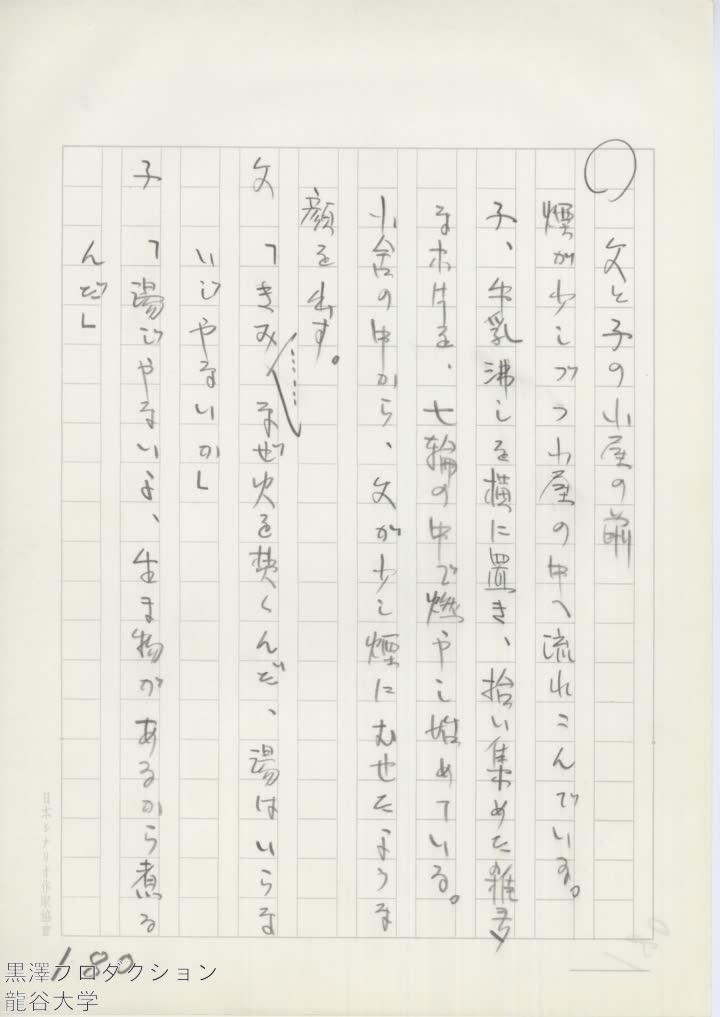 ○ 父と子の小屋の前
煙が少しづつ小屋の中へ流れこんでいる。
子、牛乳沸しを横に置き、拾い集めた雑多
な木片を、七輪の中で燃やし始めている。
小舎の中から、父が少し煙にむせたような
顔を出す。
父 「きみ、なぜ火を焚くんだ、湯はいらな
いじやないか」
子 「湯じやないよ、生ま物があるから煮る
んだ」
日本シナリオ作家協會
180
黒澤プロダクション
龍谷大学